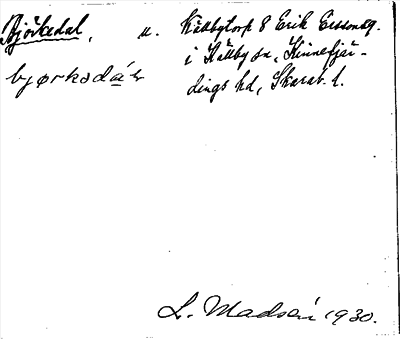 Björkedal, u. Källbytorp 8 Erik Erssonsg.
i Källby sn, Kinnefjär-
dings hd, Skarab. l.
bjørkedáɫ
L. Madsén 1930.